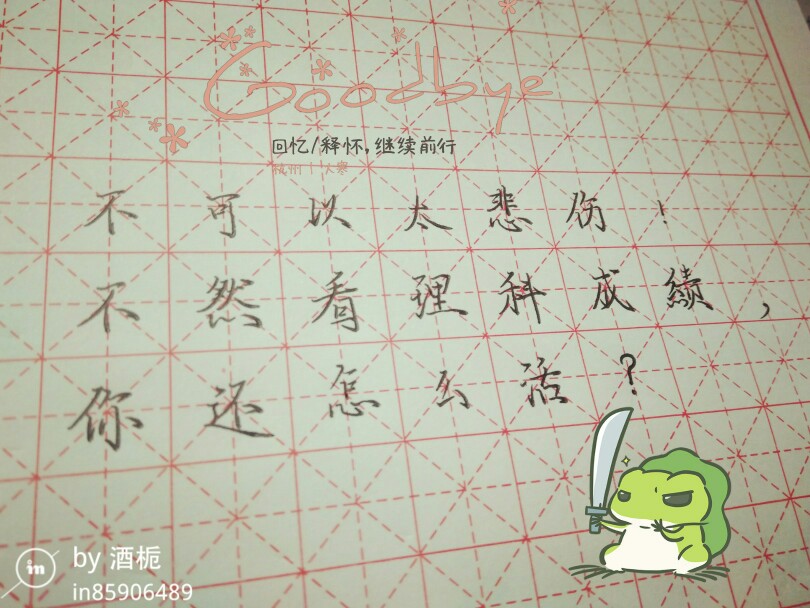 Goodbye
回忆/释怀,继续前行
杭州 | 大寒
不可以太悲伤！
不然看理科成績，
你还怎么活？
in by 酒栀
in85906489